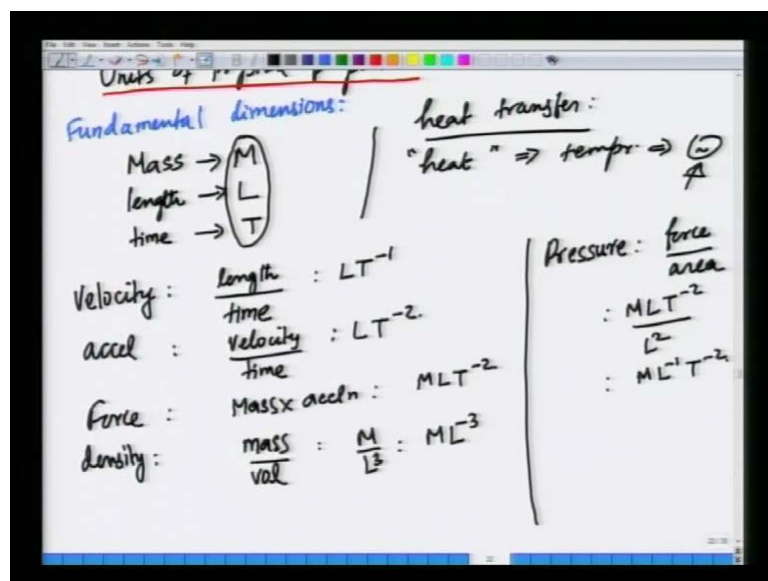 File Edit View Insert Actions Tools Help
Units of
Fundamental dimensions:
Mass → M
length → L
time → T
heat transfer:
"heat" ⇒ tempr. ⇒ (~)
Velocity : length / time : LT⁻¹
accel : velocity / time : LT⁻².
Force : Mass x accln : MLT⁻²
density : mass / vol : M / L³ : ML⁻³
Pressure : force / area
: MLT⁻² / L²
: ML⁻¹T⁻².